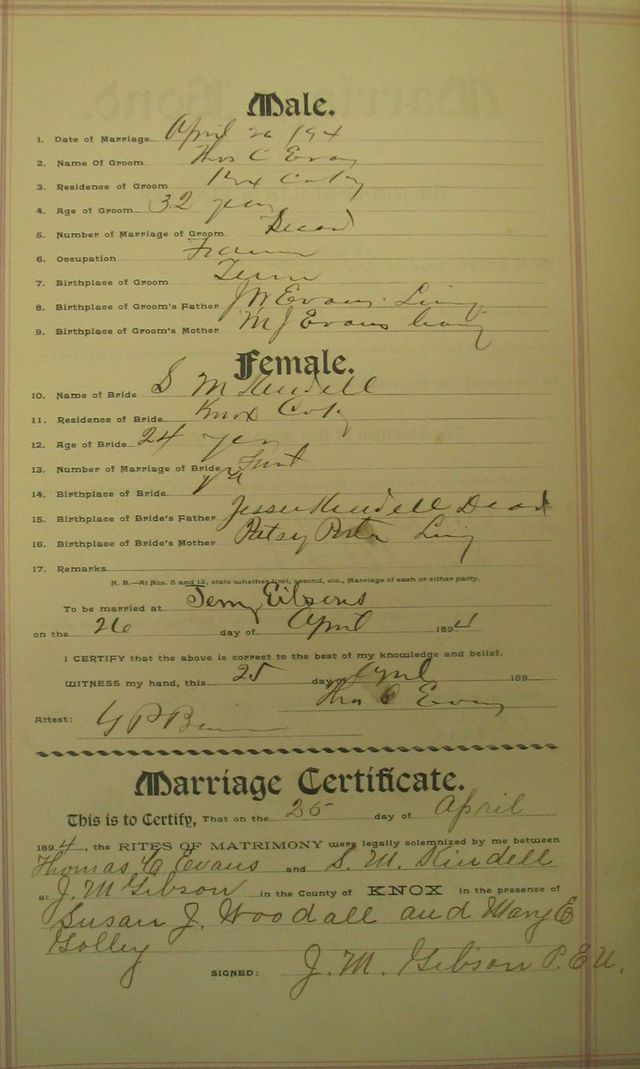 Male.
1. Date of Marriage April 26 194
2. Name Of Groom Thos C Evans
3. Residence of Groom Knx Co Ky
4. Age of Groom 32 years
5. Number of Marriage of Groom Second
6. Occupation Farmer
7. Birthplace of Groom Tenn
8. Birthplace of Groom's Father J W Evans. Living
9. Birthplace of Groom's Mother M J Evans living
Female.
10. Name of Bride S M Kindell
11. Residence of Bride Knox Co Ky
12. Age of Bride 24 years
13. Number of Marriage of Bride First
14. Birthplace of Bride
15. Birthplace of Bride's Father Jesse Kindell Dead
16. Birthplace of Bride's Mother Patsy Living
17. Remarks
N. B.—At Nos. 5 and 13, state whether first, second, etc., Marriage of each or either party.
To be married at
on the 26 day of April 1894
I CERTIFY that the above is correct to the best of my knowledge and belief.
WITNESS my hand, this 25 day of April 189
Thos C Evans
Attest: G P
Marriage Certificate.
This is to Certify, That on the 25 day of April
1894, the RITES OF MATRIMONY were legally solemnized by me between
Thomas C Evans and S. M. Kindell
at J. M Gibson in the County of KNOX in the presence of
Susan J. Woodall and Mary E
Golley
SIGNED: J. M. Gibson P. E U.